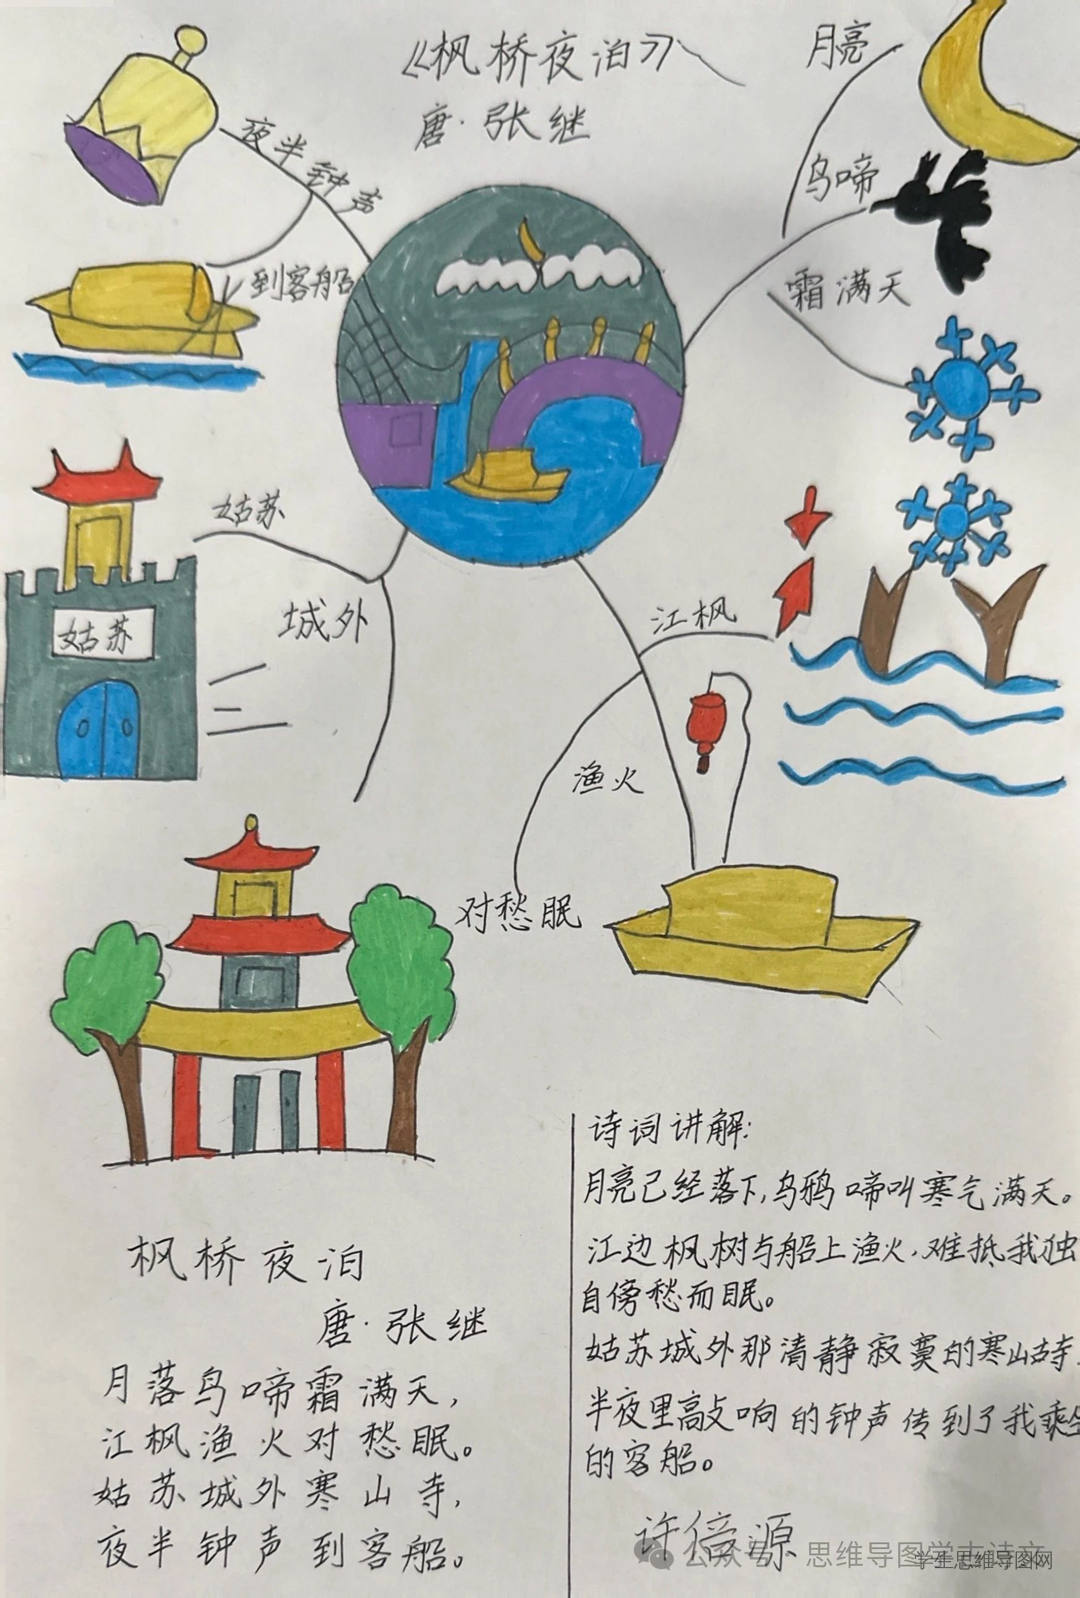 《枫桥夜泊》
唐·张继
月亮
夜半钟声
鸟啼
到客船
霜满天
姑苏
城外
姑苏
江枫
渔火
对愁眠
枫桥夜泊
唐·张继
月落鸟啼霜满天，
江枫渔火对愁眠。
姑苏城外寒山寺，
夜半钟声到客船。
诗词讲解：
月亮已经落下，乌鸦啼叫寒气满天。
江边枫树与船上渔火，难抵我独
自傍愁而眠。
姑苏城外那清静寂寞的寒山古寺
半夜里高敲响的钟声传到了我乘坐
的客船。
许倍源
公众号 思维导图学古诗文
学生思维导图网